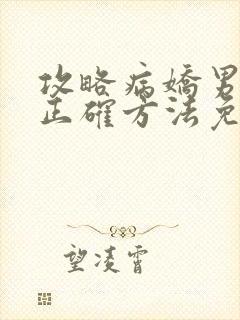 攻略病嬌男
正確方法免
望凌霄